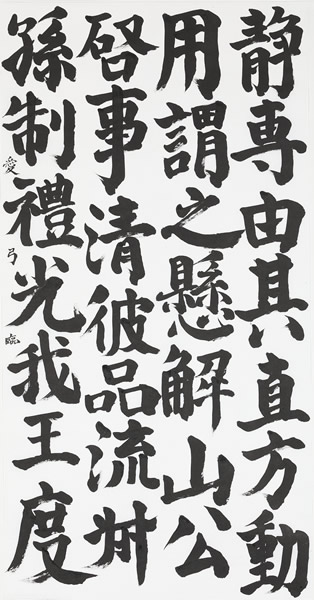 静専由其直方動
用謂之懸解山公
啓事清彼品流叔
孫制禮光我王度
愛弓臨